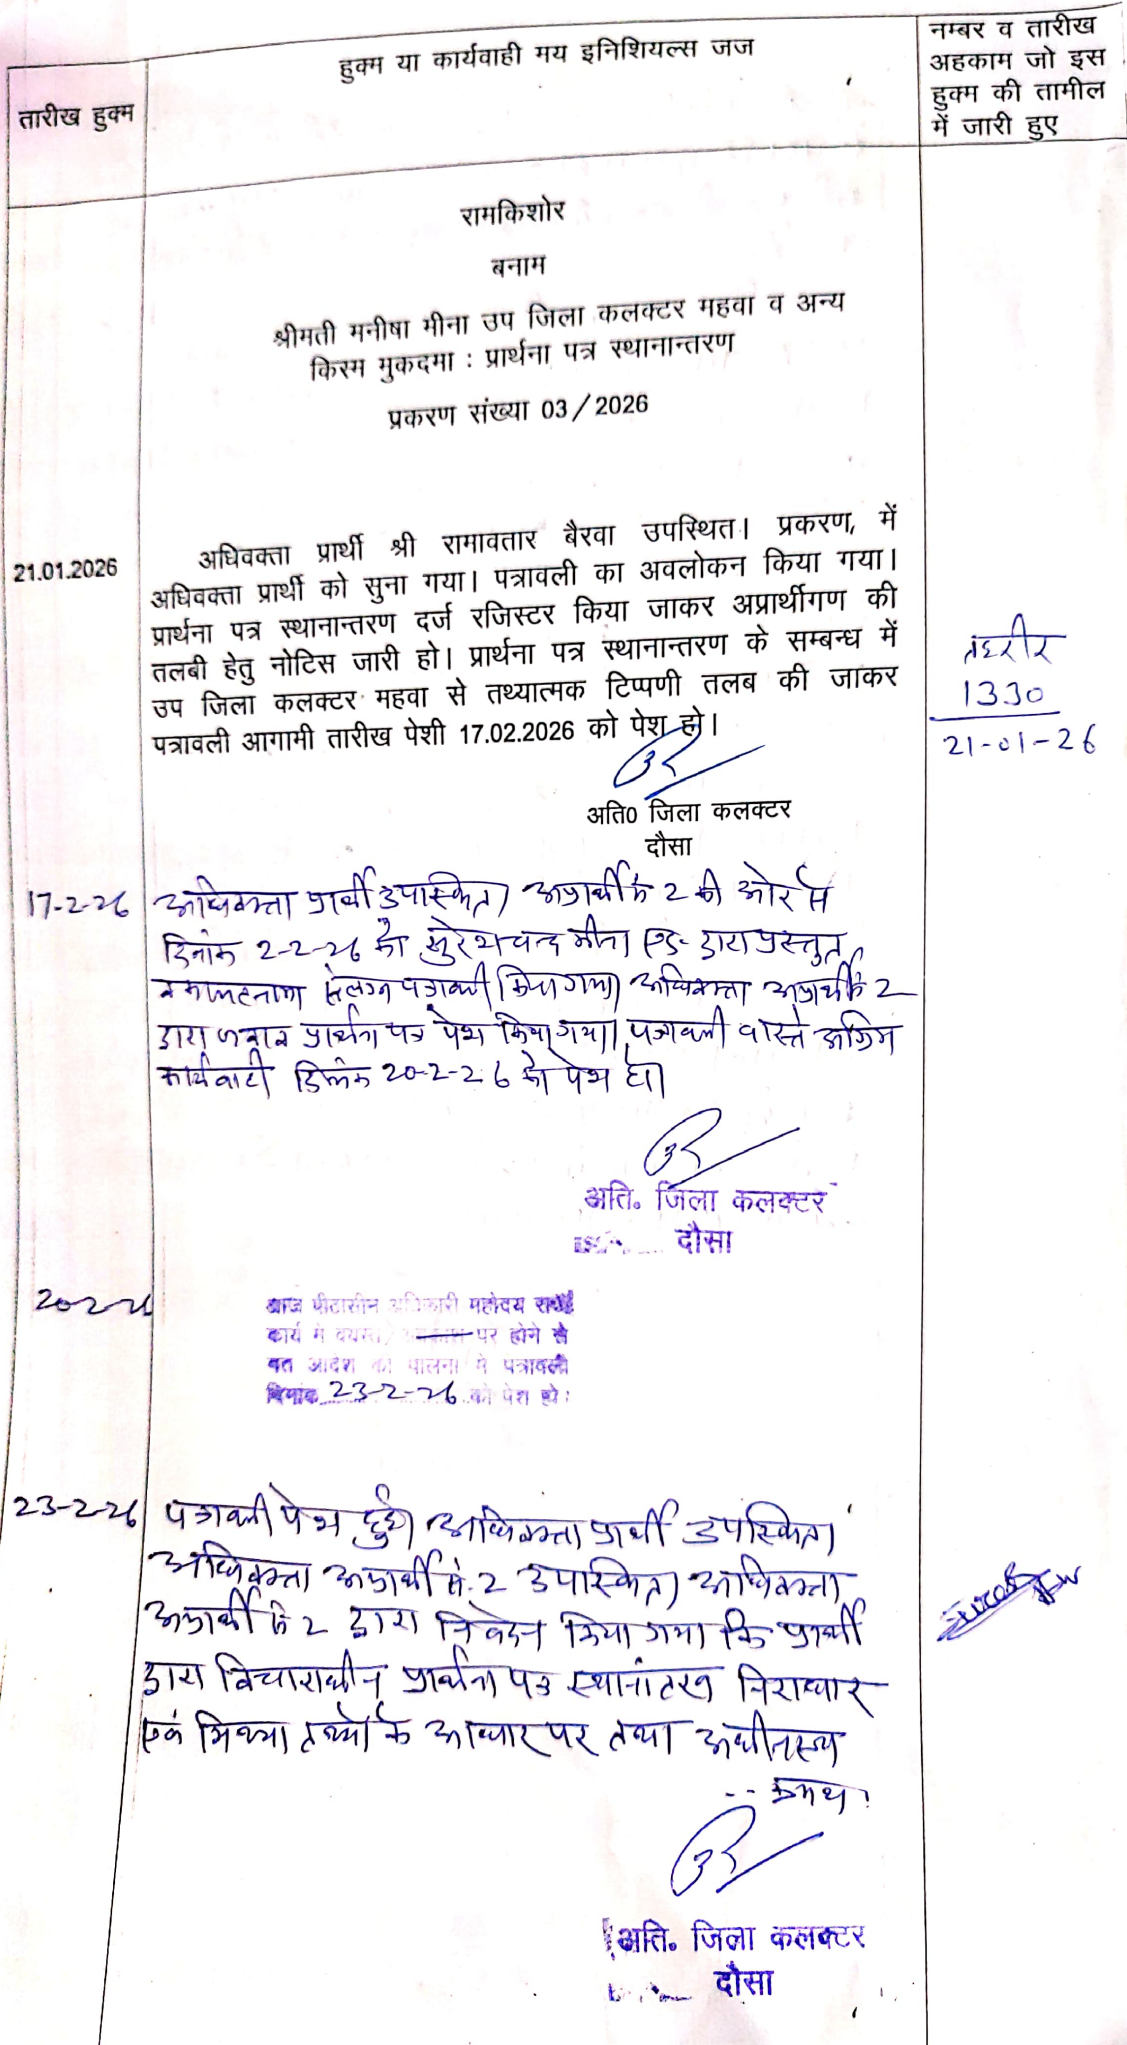 हुक्म या कार्यवाही मय इनिशियल्स जज
नम्बर व तारीख
अहकाम जो इस
हुक्म की तामील
में जारी हुए
तारीख हुक्म
रामकिशोर
बनाम
श्रीमती मनीषा मीना उप जिला कलक्टर महवा व अन्य
किस्म मुकदमा : प्रार्थना पत्र स्थानान्तरण
प्रकरण संख्या 03/2026
21.01.2026
अधिवक्ता प्रार्थी श्री रामावतार बैरवा उपस्थित। प्रकरण, में
अधिवक्ता प्रार्थी को सुना गया। पत्रावली का अवलोकन किया गया।
प्रार्थना पत्र स्थानान्तरण दर्ज रजिस्टर किया जाकर अप्रार्थीगण की
तलबी हेतु नोटिस जारी हो। प्रार्थना पत्र स्थानान्तरण के सम्बन्ध में
उप जिला कलक्टर महवा से तथ्यात्मक टिप्पणी तलब की जाकर
पत्रावली आगामी तारीख पेशी 17.02.2026 को पेश हो।
तहरीर
1330
21-01-26
अति0 जिला कलक्टर
दौसा
17-2-26
अधिवक्ता प्रार्थी उपस्थित। अप्रार्थी सं 2 की ओर से
दिनांक 2-2-26 को सुरेशचन्द मीना एड- द्वारा प्रस्तुत
वकालतनामा संलग्न पत्रावली किया गया। अधिवक्ता अप्रार्थी सं 2
द्वारा जवाब प्रार्थना पत्र पेश किया गया। पत्रावली वास्ते अग्रिम
कार्यवाही दिनांक 20-2-26 को पेश हो।
अति. जिला कलक्टर
दौसा
20-2-26
आज पीठासीन अधिकारी महोदय
कार्य में व्यस्त अवकाश पर होने से
आदेश की पालना में पत्रावली
दिनांक 23-2-26 को पेश हो।
23-2-26
पत्रावली पेश हुई। अधिवक्ता प्रार्थी उपस्थित।
अधिवक्ता अप्रार्थी सं. 2 उपस्थित। अधिवक्ता
अप्रार्थी सं 2 द्वारा निवेदन किया गया कि प्रार्थी
द्वारा विचाराधीन प्रार्थना पत्र स्थानांतरण निराधार
एवं मिथ्या तथ्यों के आधार पर तथा अधीनस्थ
-- क्रमश।
अति. जिला कलक्टर
दौसा